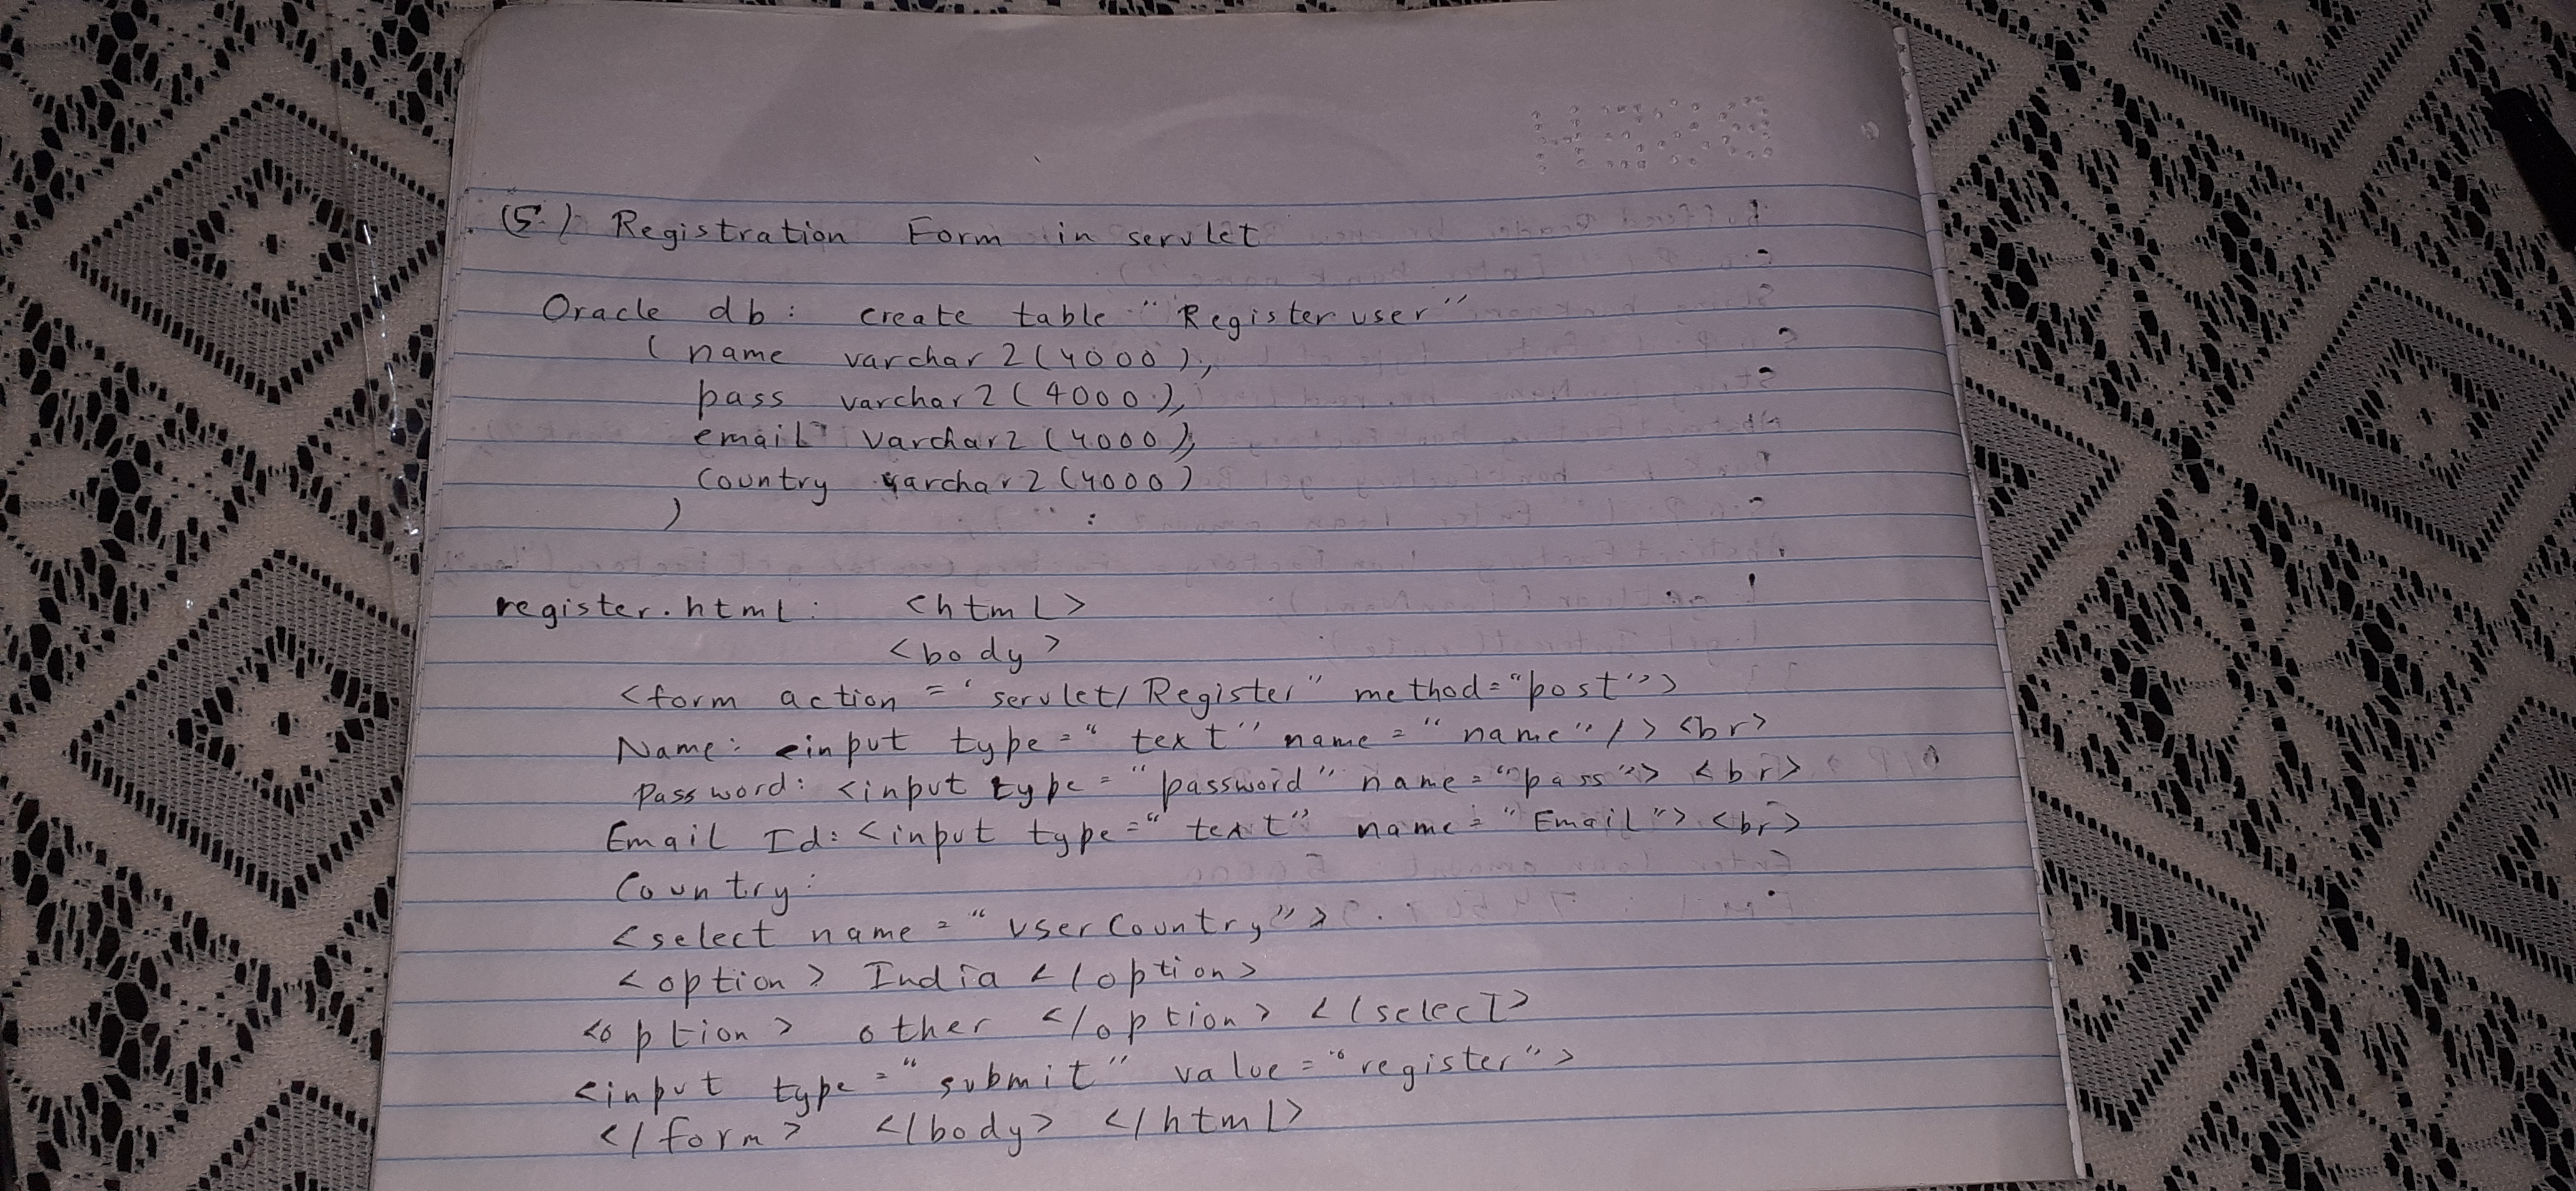 (5.) Registration Form in servlet
Oracle db: create table "Registeruser"
(name varchar2(4000),
pass varchar2(4000),
email varchar2(4000),
Country varchar2(4000)
)
register.html: <html>
<body>
<form action = "servlet/Register" method="post">
Name: <input type="text" name="name"/><br>
Password: <input type="password" name="pass"><br>
Email Id: <input type="text" name="Email"><br>
Country:
<select name="userCountry">
<option>India</option>
<option>other</option></select>
<input type="submit" value="register">
</form></body></html>